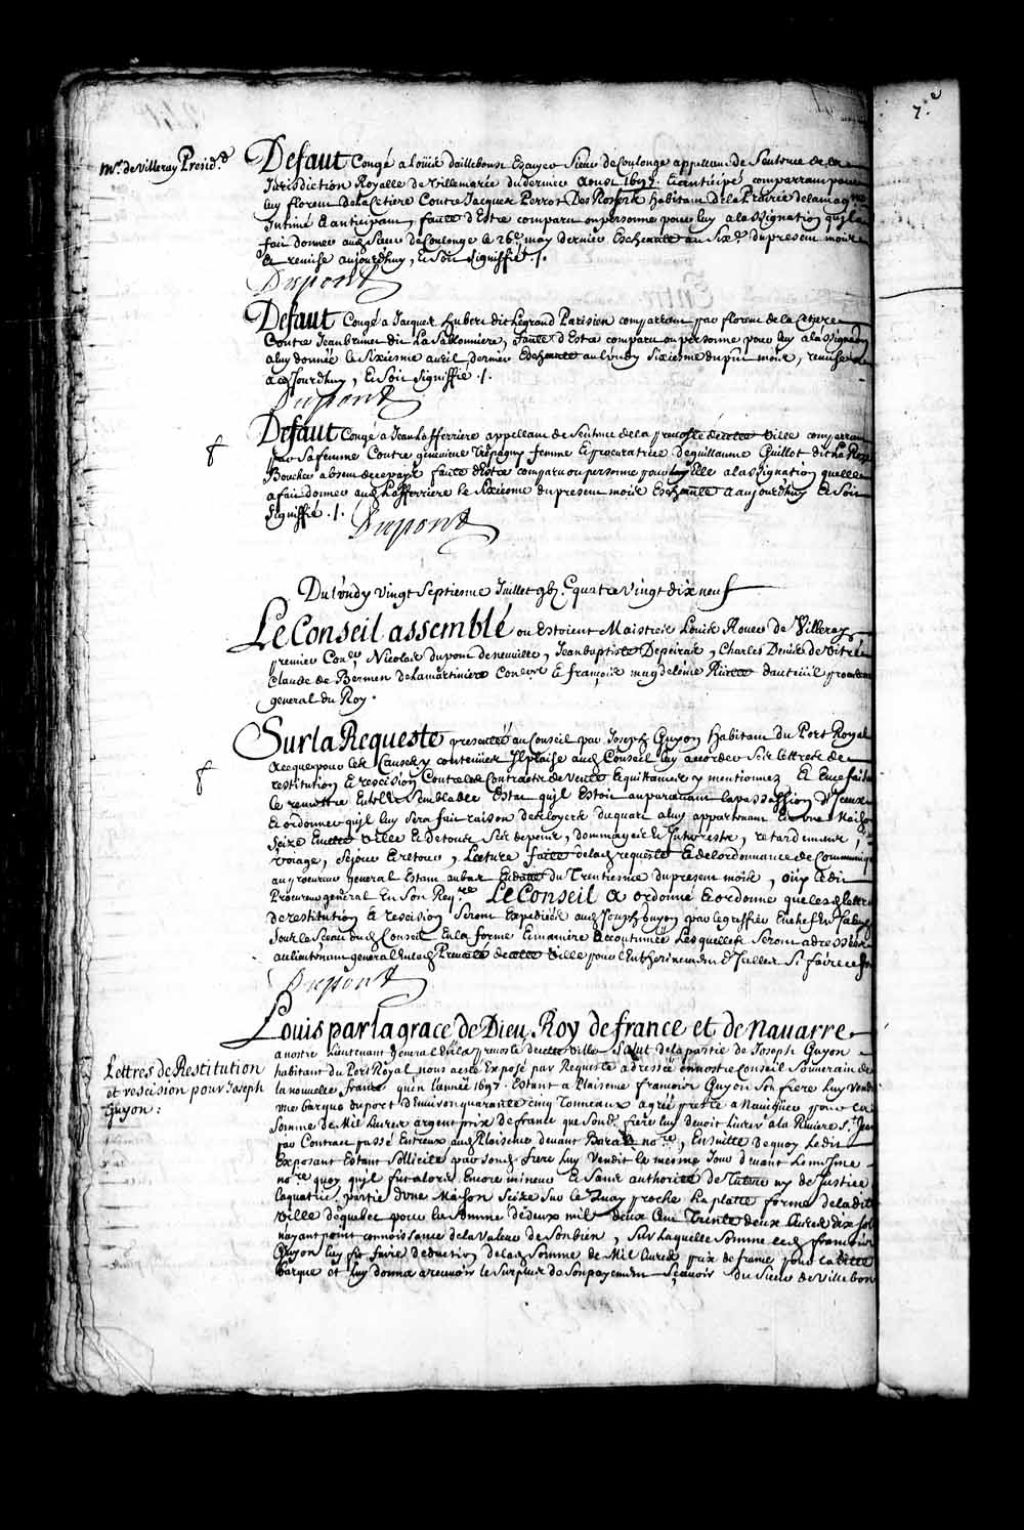 7.e
Mr. de Villeray Presid.t
Defaut Congé a Louis dailleboust Escuyer Sieur de Coulonge appellant de Sentence de la
Jurisdiction Royalle de Villemarie du dernier Aoust 1697. Et anticipé comparant pour
luy florent de la Cetiere Contre Jacques Perrot Des Rochers habitant de la Prairie de la magne
Intimé et anticipant, faute d'Estre comparu ou personne pour luy a lassignation quil a
fait donner aud. Sieur de Coulonge le 26.e may dernier Escheante au Six.e du present mois
Et remise aujourdhuy, Et Soit Signiffié ./.
Dupont
Defaut Congé a Jacques hubert dit Legrand Parisien comparant par florent de la Cetiere
Contre Jean brunet dit La Sablonniere, faute d'Estre comparu ou personne pour luy a lassignation
a luy donnée le Sixiesme avril dernier Escheante au lundy Sixiesme du pnt mois, remise
a cejourdhuy, Et Soit Signiffié ./.
Dupont
Defaut Congé a Jean Lafferriere appellant de Sentence de la prevosté de cette Ville comparant
par Sa femme Contre genevieve Trépagny femme Et procuratrice de guillaume Guillot dit La Roze
Boucher absent de ce pays faute d'Estre comparu ou personne pour Elle a lassignation quelle
a fait donner aud. Lafferriere le Sixiesme du present mois Escheante a aujourdhuy Et Soit
Signiffié ./. Dupont
Du lundy Vingt Septiesme Juillet gbj.c quatre Vingt dix neuf
Le Conseil assemblé ou Estoient Maistres Louis Rouer de Villeray
premier Con.er Nicolas dupont de neuville, Jean baptiste Depeiras, Charles Denis de Vitré
Claude de Bermen de la martiniere Con.ers Et françois magdeleine Rüette dauteüil procureur
general du Roy.
Sur la Requeste presentée au Conseil par Joseph Guyon habitant du Port Royal
A ce que pour les Causes y contenües Il plaise aud. Conseil luy accorder Ses lettres de
restitution Et rescision Contre les Contracts de Vente Et quittances y mentionnez Et Ce faisant
le remettre En tel Et Semblable Estat quil Estoit auparavant la passassion d'Iceux
Et ordonner quil luy Sera fait raison des loyers du quart a luy appartenant En une Maison
Seize En cette Ville Et de tous Ses depens, dommages Et Interests, retardement,
voiage, Sejour Et retour, Lecture faite de lad. requeste Et de lordonnance de Communiqué
au procureur general Estant au bas En datte du Trentiesme du present mois, oüy Ledit
Procureur general En Son Req.re Le Conseil a ordonné Et ordonne que lesd. lettres
de restitution Et rescision Seront Expediées aud. Joseph Guyon par le greffier En chef En Iceluy
Sous le Sceau dud. Conseil En la forme Et maniere accoutumée Lesquelles Seront adressées
au lieutenant general En lad. Prevosté de cette Ville pour l'Entherinement d'Icelles Si faire ce
Dupont
Louis par la grace de Dieu Roy de france et de Navarre
Lettres de Restitution
et rescision pour Joseph
Guyon:
a nostre Lieutenant general En la prevosté de cette Ville Salut de la partie de Joseph Guyon
habitant du Port Royal nous a esté Exposé par Requeste adressée En nostre Conseil Souverain de
la nouvelle france qu'en l'année 1697. Estant a Plaisence francois Guyon Son frere luy Vendit
une barque du port d'Environ quarante cinq Tonneaux agréé preste a Naviguer pour la
Somme de Mil livres argent prix de france que Sond. frere luy devoit livrer a la Riviere S.t Jean
par Contract passé Entreux aud. Plaisence devant Barat no.re, Ensuitte de quoy Ledit
Exposant Estant Sollicité par Sond. frere luy Vendit le mesme Jour devant Le mesme
no.re quoy quil fut alors Encore mineur Et Sans authorité de Tuteur ny de Justice
la quatrie. partie d'une Maison Seize Sur le Quay proche la platte forme de ladite
Ville de quebec pour la Somme de deux mil deux Cent Trente deux livres dix Sols
n'ayant point connoissance de la Valeur de Son bien, Sur Laquelle Somme led. francois
Guyon luy fit faire deduction de lad. Somme de Mil livres prix de france pour ladite
barque et luy donna a recevoir le Surplus de Son payement Sçavoir du Sieur de Villebon